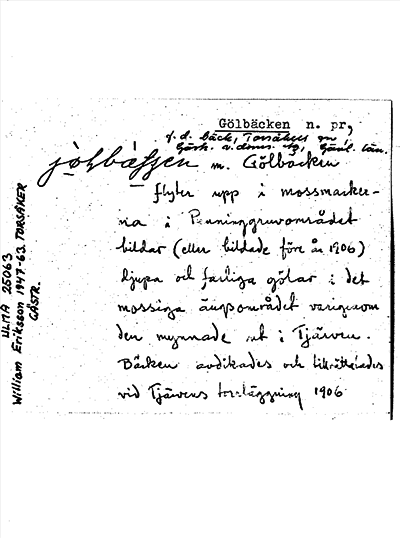 Gölbäcken n. pr.,
f. d. bäck, Torsåkers sn
Gästr. Gävl. län.
m. Gölbäcken
flyter upp i mossmarker-
na i Penninggruvområdet
bildar (eller bildade före år 1906)
djupa och farliga gölar i det
mossiga ängsområdet varigenom
den mynnade ut i Tjärven.
Bäcken avdikades och tillrättalades
vid Tjärvens torrläggning 1906
ULMA 25063
William Eriksson 1947-63. TORSÅKER
GÄSTR.